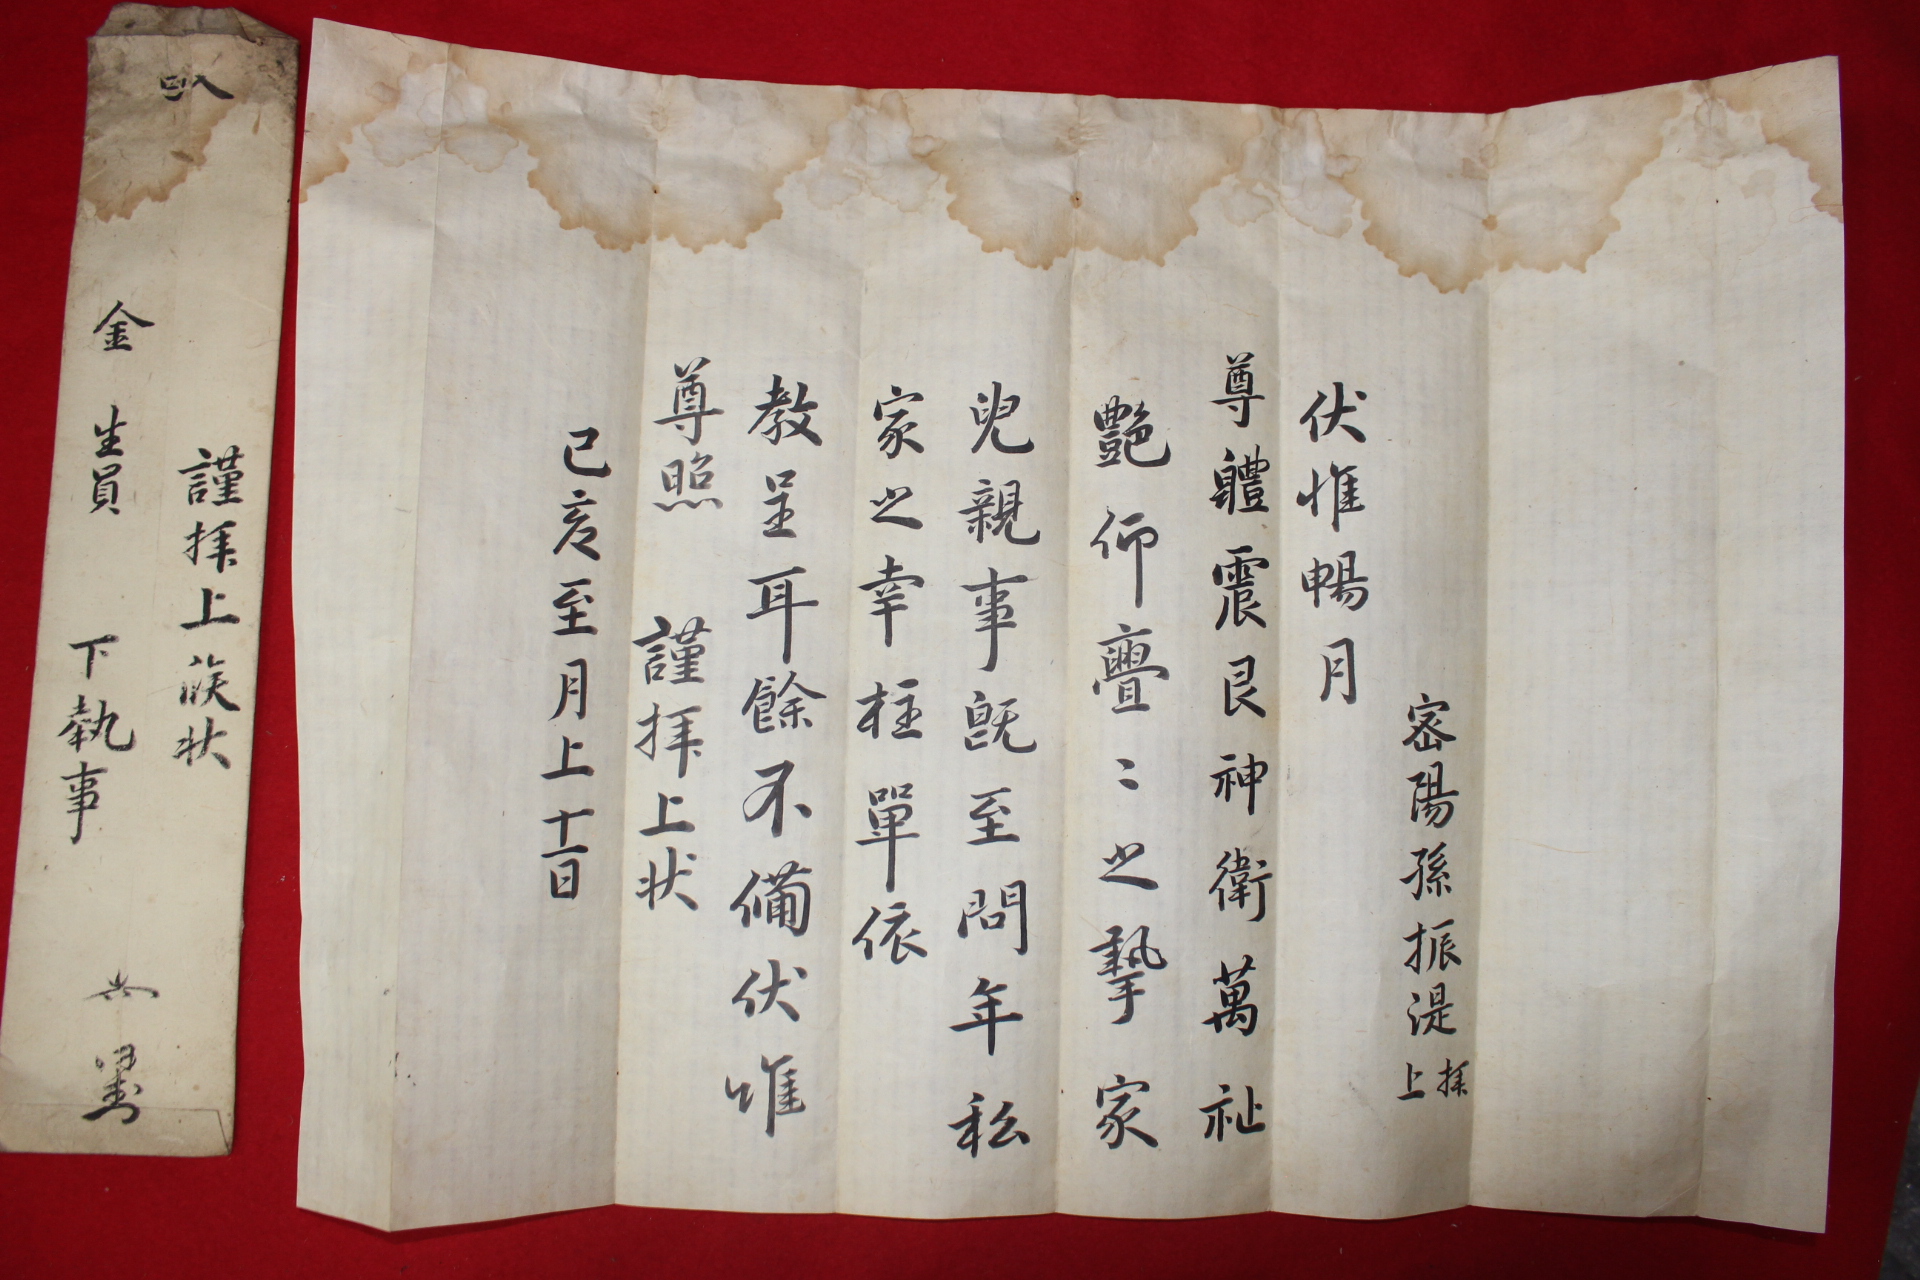 密陽孫振湜 拜上
伏惟暢月
尊體震艮神衛萬祉
艶仰亹〻之摯家
兒親事旣至問年私
家之幸柱單依
敎呈耳餘不備伏惟
尊照 謹拜上狀
己亥至月上十一日
謹拜上候狀
金 生員 下執事